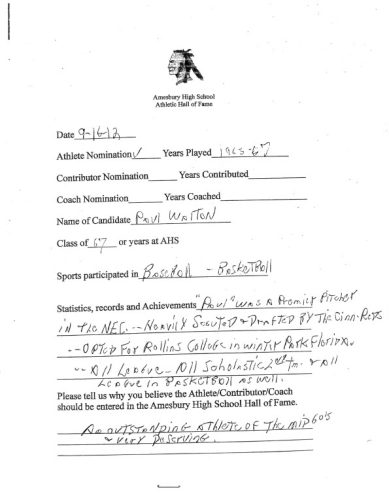 Amesbury High School
Athletic Hall of Fame
Date 9-16-12
Athlete Nomination✓ Years Played 1965-67
Contributor Nomination Years Contributed
Coach Nomination Years Coached
Name of Candidate Paul Walton
Class of 67 or years at AHS
Sports participated in Baseball - Basketball
Statistics, records and Achievements "Paul" was a Premier Pitcher
in the NEC. -- Heavily Scouted & Drafted By The Cinn-Reds
-- Opted For Rollins College in Winter Park Florida.
-- All League - All Scholastic 2nd tm. & All
League in Basketball as well.
Please tell us why you believe the Athlete/Contributor/Coach
should be entered in the Amesbury High School Hall of Fame.
An outstanding athlete of the mid 60's
& very Deserving.